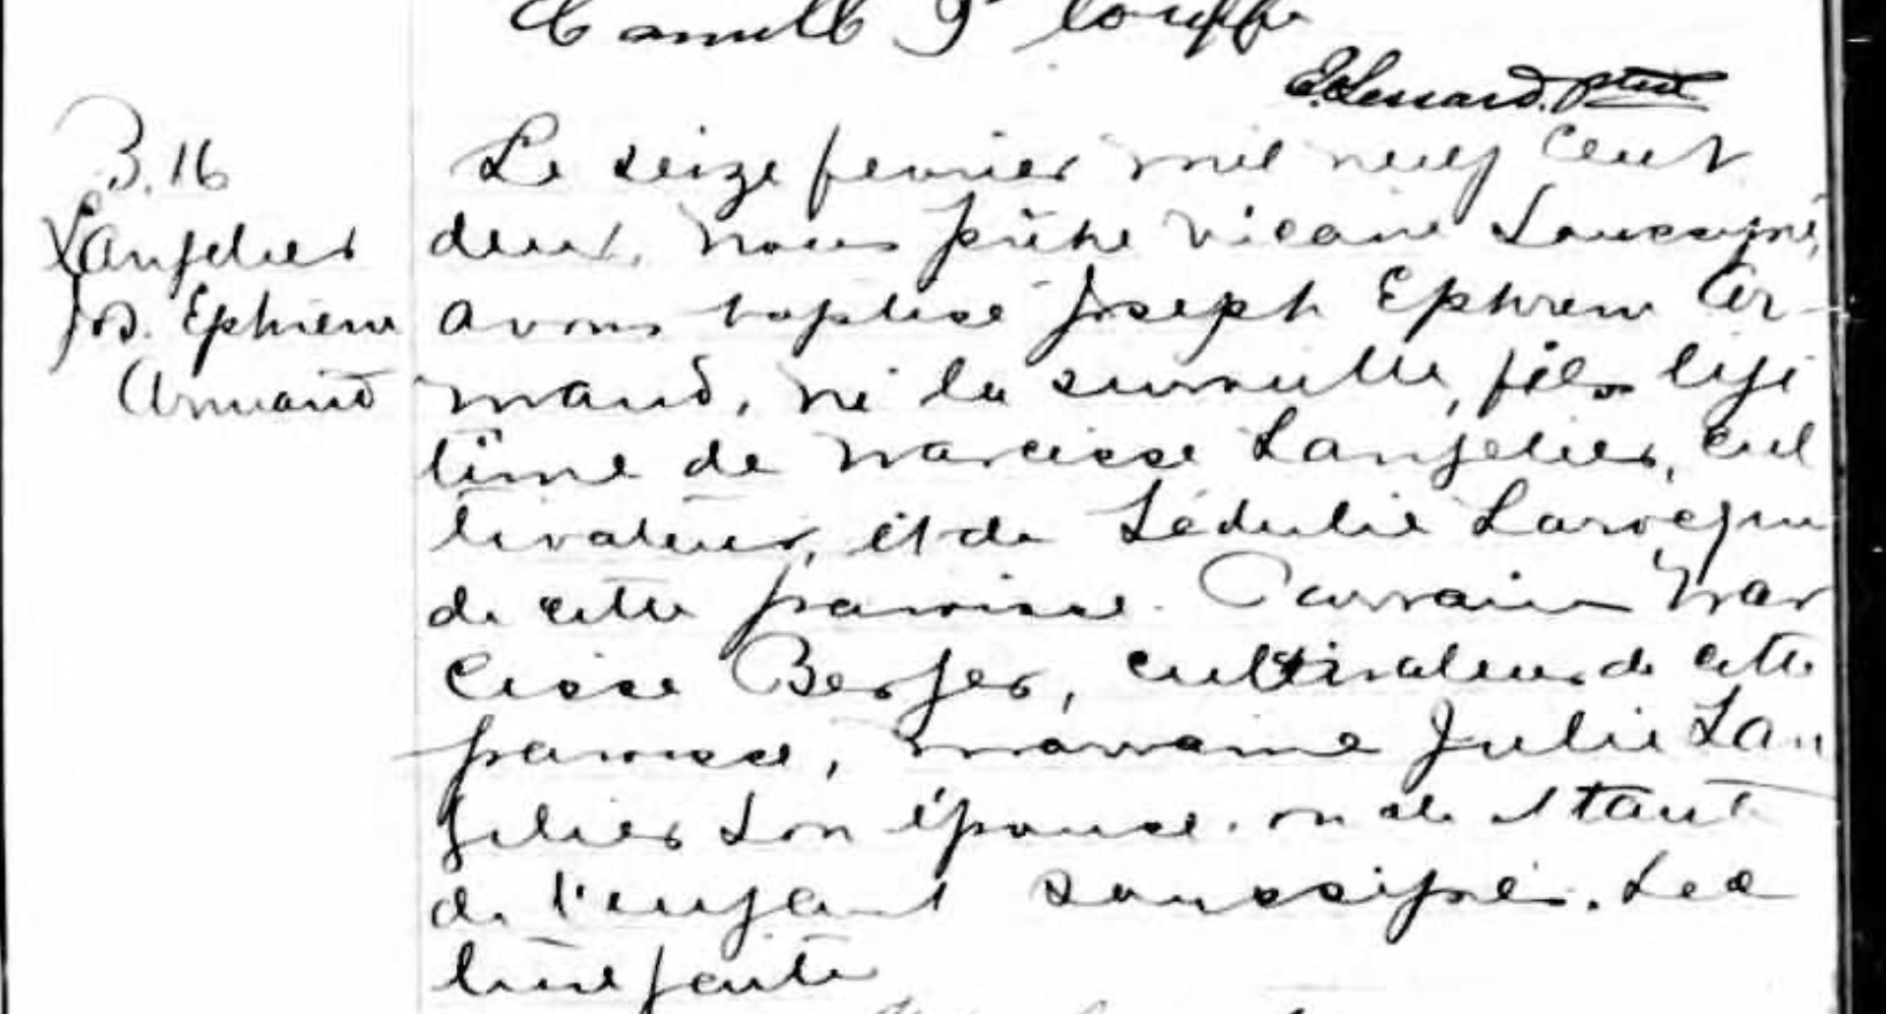 Camille
Lessard. ptre
B. 16
Langelier
Jos. Ephrem
Armand
Le seize fevrier mil neuf cent
deux, nous prêtre vicaire soussigné,
avons baptisé Joseph Ephrem Ar-
mand, né la surveille, fils légi
time de Narcisse Langelier, cul
tivateur, et de Sédulie Larocque
de cette paroisse. Parrain Nar
cisse Berger, cultivateur de cette
paroisse, marraine Julie Lan
gelier son épouse. oncle et tante
de l'enfant soussignés. Lec
ture faite